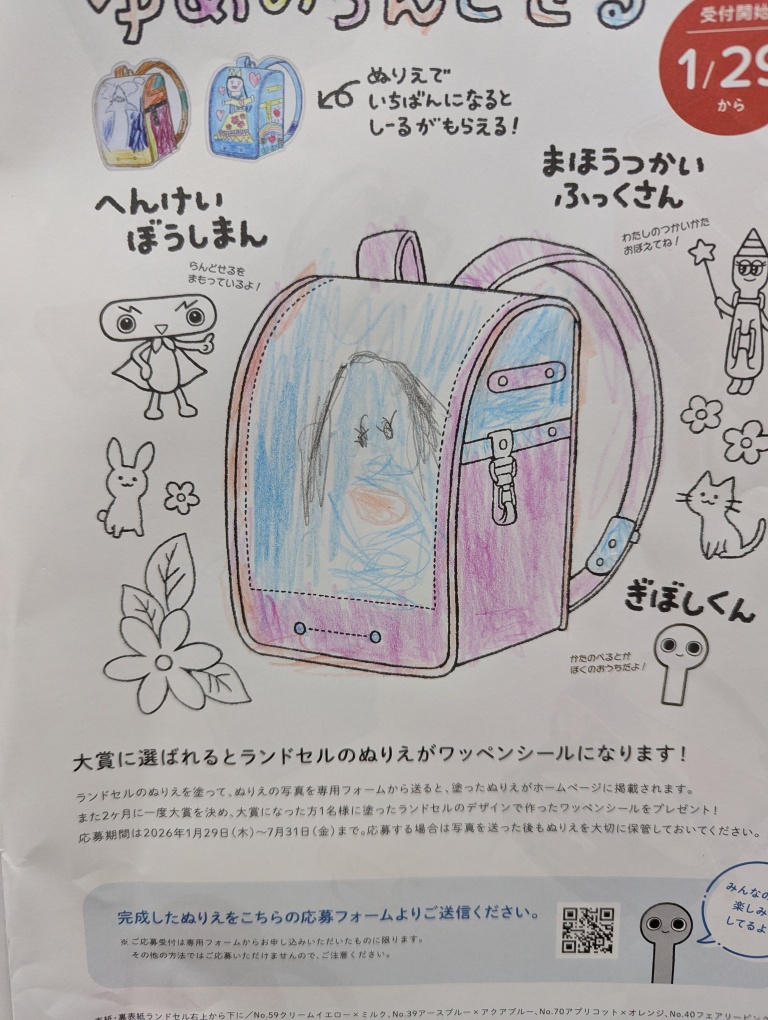 ゆめのらんどせる
受付開始
1/29
から
ぬりえで
いちばんになると
しーるがもらえる!
まほうつかい
ふっくさん
わたしのつかいかた
おぼえてね!
へんけい
ぼうしまん
らんどせるを
まもっているよ!
ぎぼしくん
かたのべるとが
ぼくのおうちだよ!
大賞に選ばれるとランドセルのぬりえがワッペンシールになります!
ランドセルのぬりえを塗って、ぬりえの写真を専用フォームから送ると、塗ったぬりえがホームページに掲載されます。
また2ヶ月に一度大賞を決め、大賞になった方1名様に塗ったランドセルのデザインで作ったワッペンシールをプレゼント!
応募期間は2026年1月29日(木)〜7月31日(金)まで。応募する場合は写真を送った後もぬりえを大切に保管しておいてください。
完成したぬりえをこちらの応募フォームよりご送信ください。
※ご応募受付は専用フォームからお申し込みいただいたものに限ります。
その他の方法ではご応募いただけませんので、ご注意ください。
みんなの
楽しみ
してるよ
表紙・裏表紙ランドセル右上から下に/No.59クリームイエロー×ミルク、No.39アースブルー×アクアブルー、No.70アプリコット×オレンジ、No.40フェアリーピンク